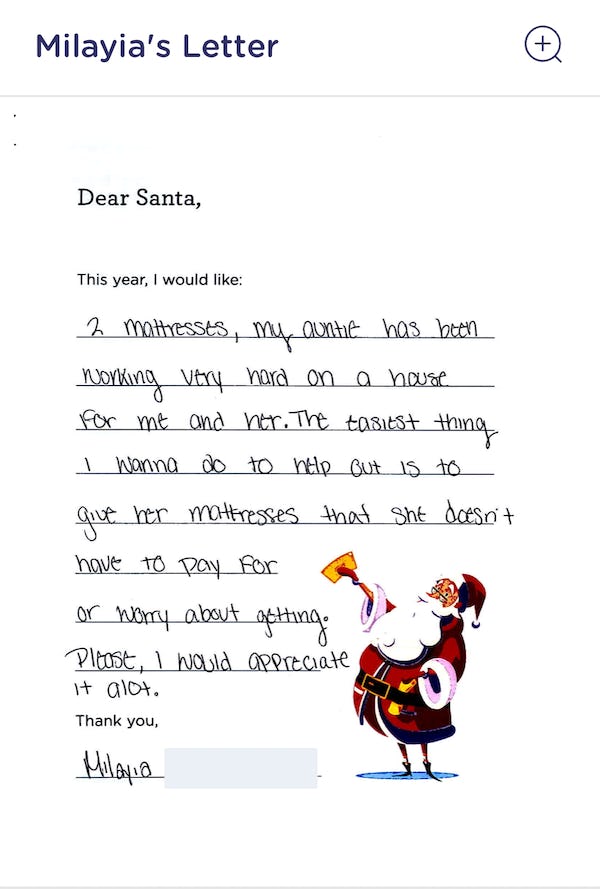 Milayia's Letter
Dear Santa,
This year, I would like:
2 mattresses, my auntie has been
working very hard on a house
for me and her. The easiest thing
I wanna do to help out is to
give her mattresses that she doesn't
have to pay for
or worry about getting.
Please, I would appreciate
it alot.
Thank you,
Milayia